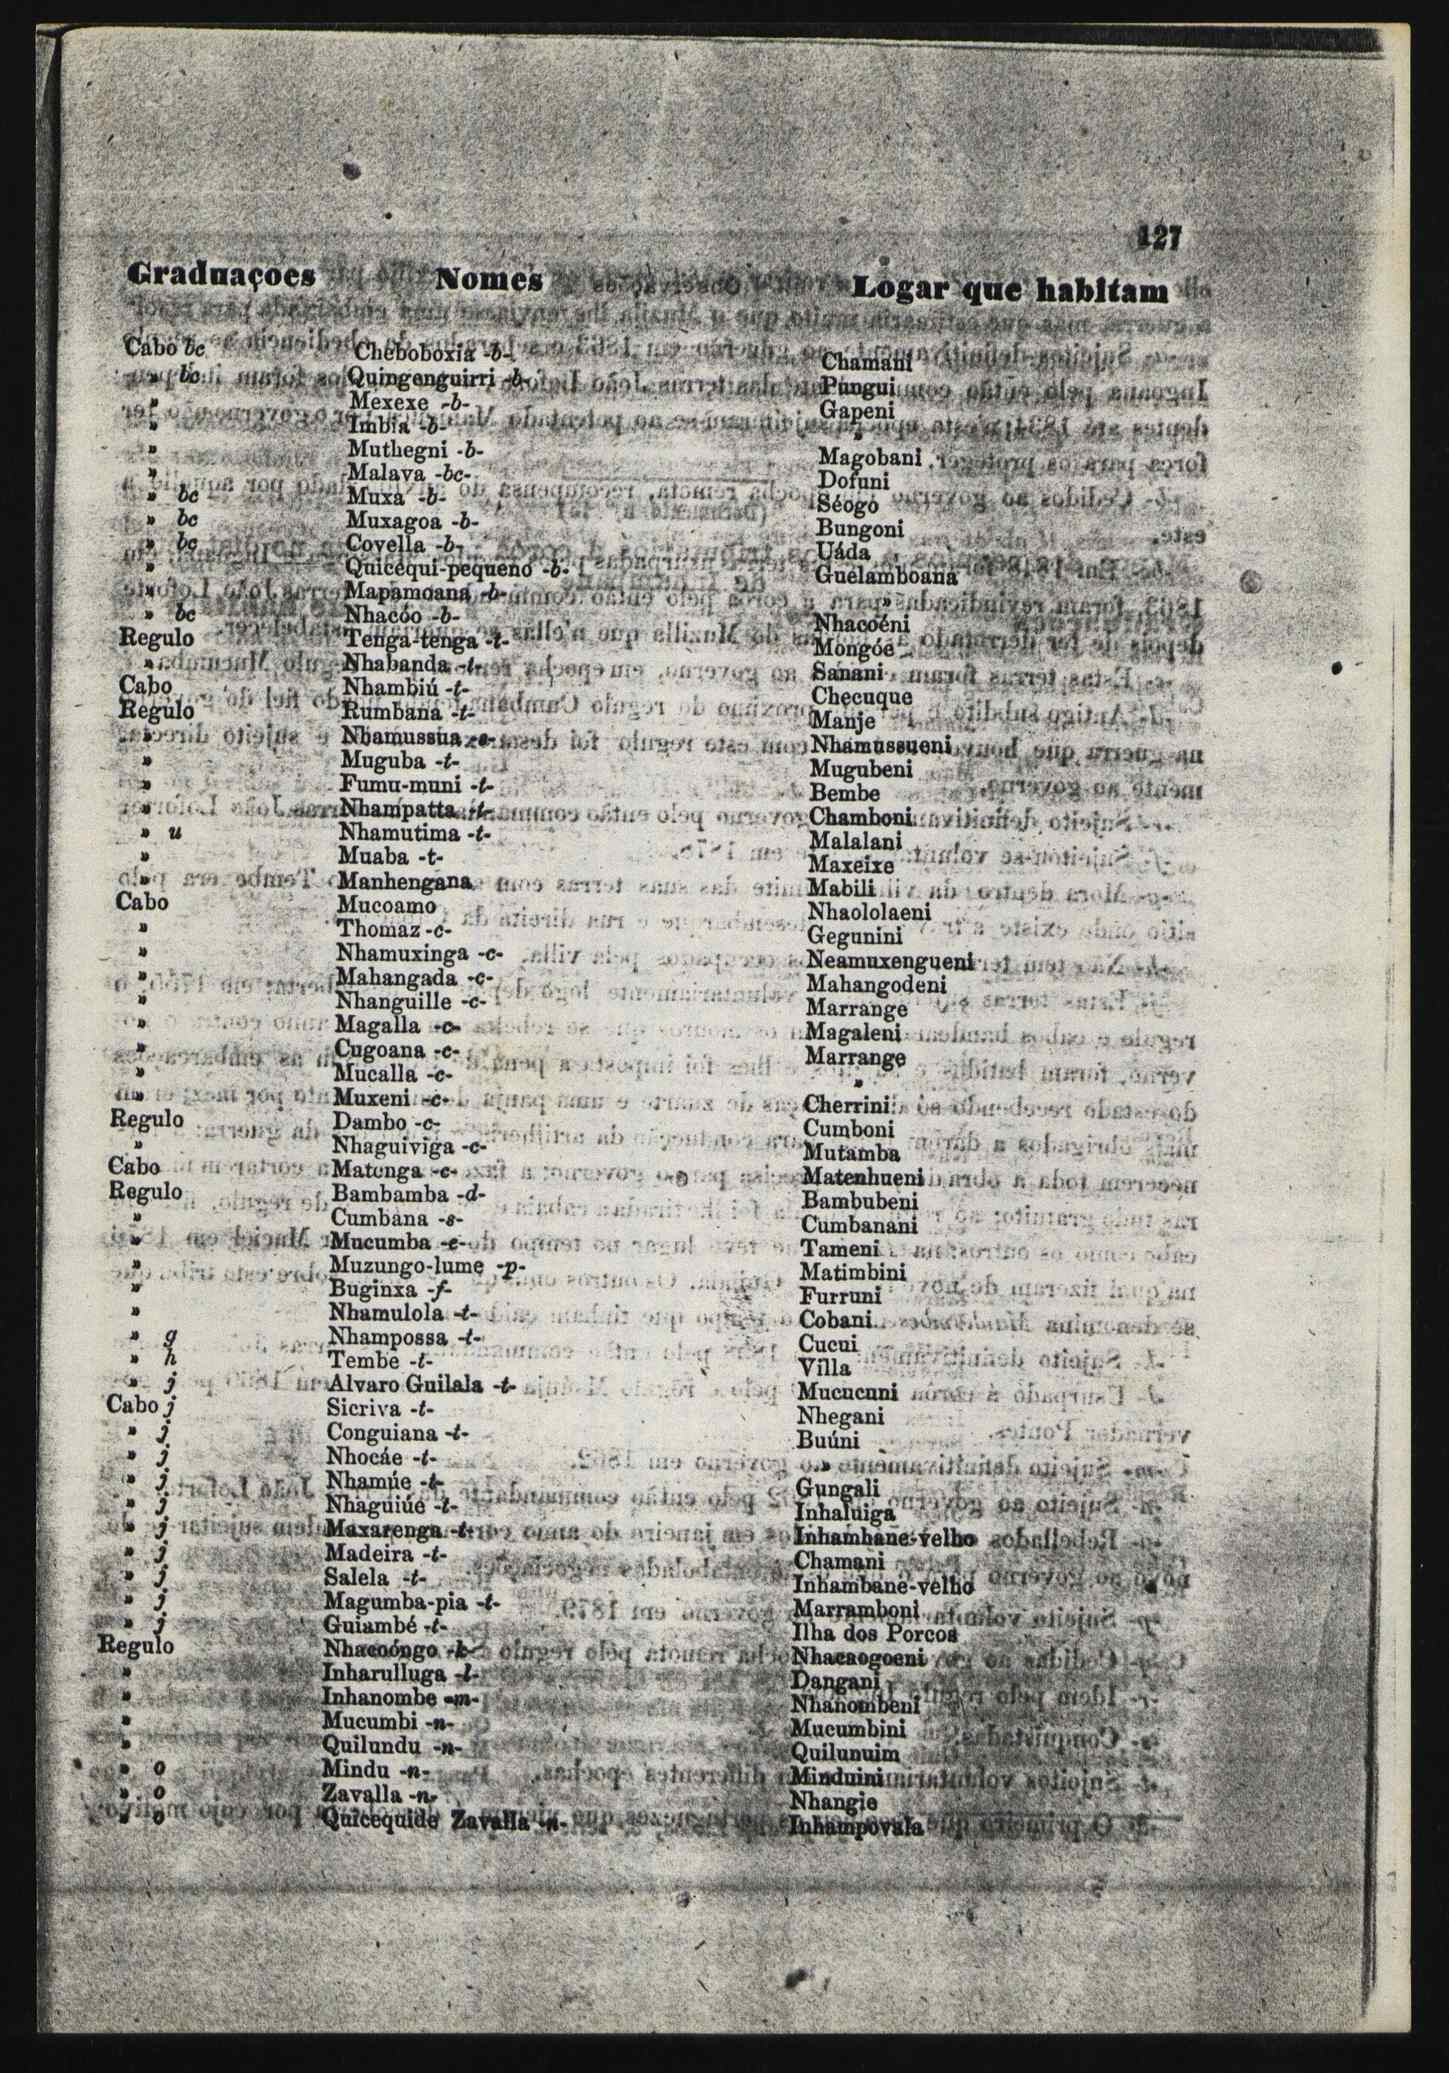 127
Graduaçoes Nomes Logar que habitam
Cabo bc Cheboboxia -b- Chamani
» bc Quingenguirri -b- Pungui
» Mexexe -b- Gapeni
» Imbia -b- »
» Muthegni -b- Magobani
» Malava -bc- Dofuni
» bc Muxa -b- Séogo
» bc Muxagoa -b- Bungoni
» bc Covella -b- Uáda
» Quicequi-pequeno -b- Guelamboana
» Mapamoana -b- »
» bc Nhacóo -b- Nhacoéni
Regulo Tenga-tenga -t- Mongóe
» Nhabanda -t- Sanani
Cabo Nhambiú -t- Checuque
Regulo Rumbana -t- Manje
» Nhamussua -s- Nhamussueni
» Muguba -t- Mugubeni
» Fumu-muni -t- Bembe
» Nhampatta -t- Chamboni
» u Nhamutima -t- Malalani
» Muaba -t- Maxeixe
» Manhengana Mabili
Cabo Mucoamo Nhaololaeni
» Thomaz -c- Gegunini
» Nhamuxinga -c- Neamuxengueni
» Mahangada -c- Mahangodeni
» Nhanguille -c- Marrange
» Magalla -c- Magaleni
» Cugoana -c- Marrange
» Mucalla -c- »
» Muxeni -c- Cherrini
Regulo Dambo -c- Cumboni
» Nhaguiviga -c- Mutamba
Cabo Matenga -c- Matenhueni
Regulo Bambamba -d- Bambubeni
» Cumbana -s- Cumbanani
» Mucumba -e- Tameni
» Muzungo-lume -p- Matimbini
» Buginxa -f- Furruni
» Nhamulola -t- Cobani
» g Nhampossa -t- Cucui
» h Tembe -t- Villa
» j Alvaro Guilala -t- Mucucuni
Cabo j Sicriva -t- Nhegani
» j Conguiana -t- Buúni
» j Nhocáe -t- »
» j Nhamúe -t- Gungali
» j Nhaguiúe -t- Inhaluiga
» j Maxarenga -t- Inhambane-velho
» j Madeira -t- Chamani
» j Salela -t- Inhambane-velho
» j Magumba-pia -t- Marramboni
» j Guiambé -t- Ilha dos Porcos
Regulo Nhacoóngo -k- Nhacaogoeni
» Inharulluga -l- Dangani
» Inhanombe -m- Nhanombeni
» Mucumbi -n- Mucumbini
» Quilundu -n- Quilunuim
» o Mindu -n- Minduini
» o Zavalla -n- Nhangie
» o Quicequide Zavalla -n- Inhampovala